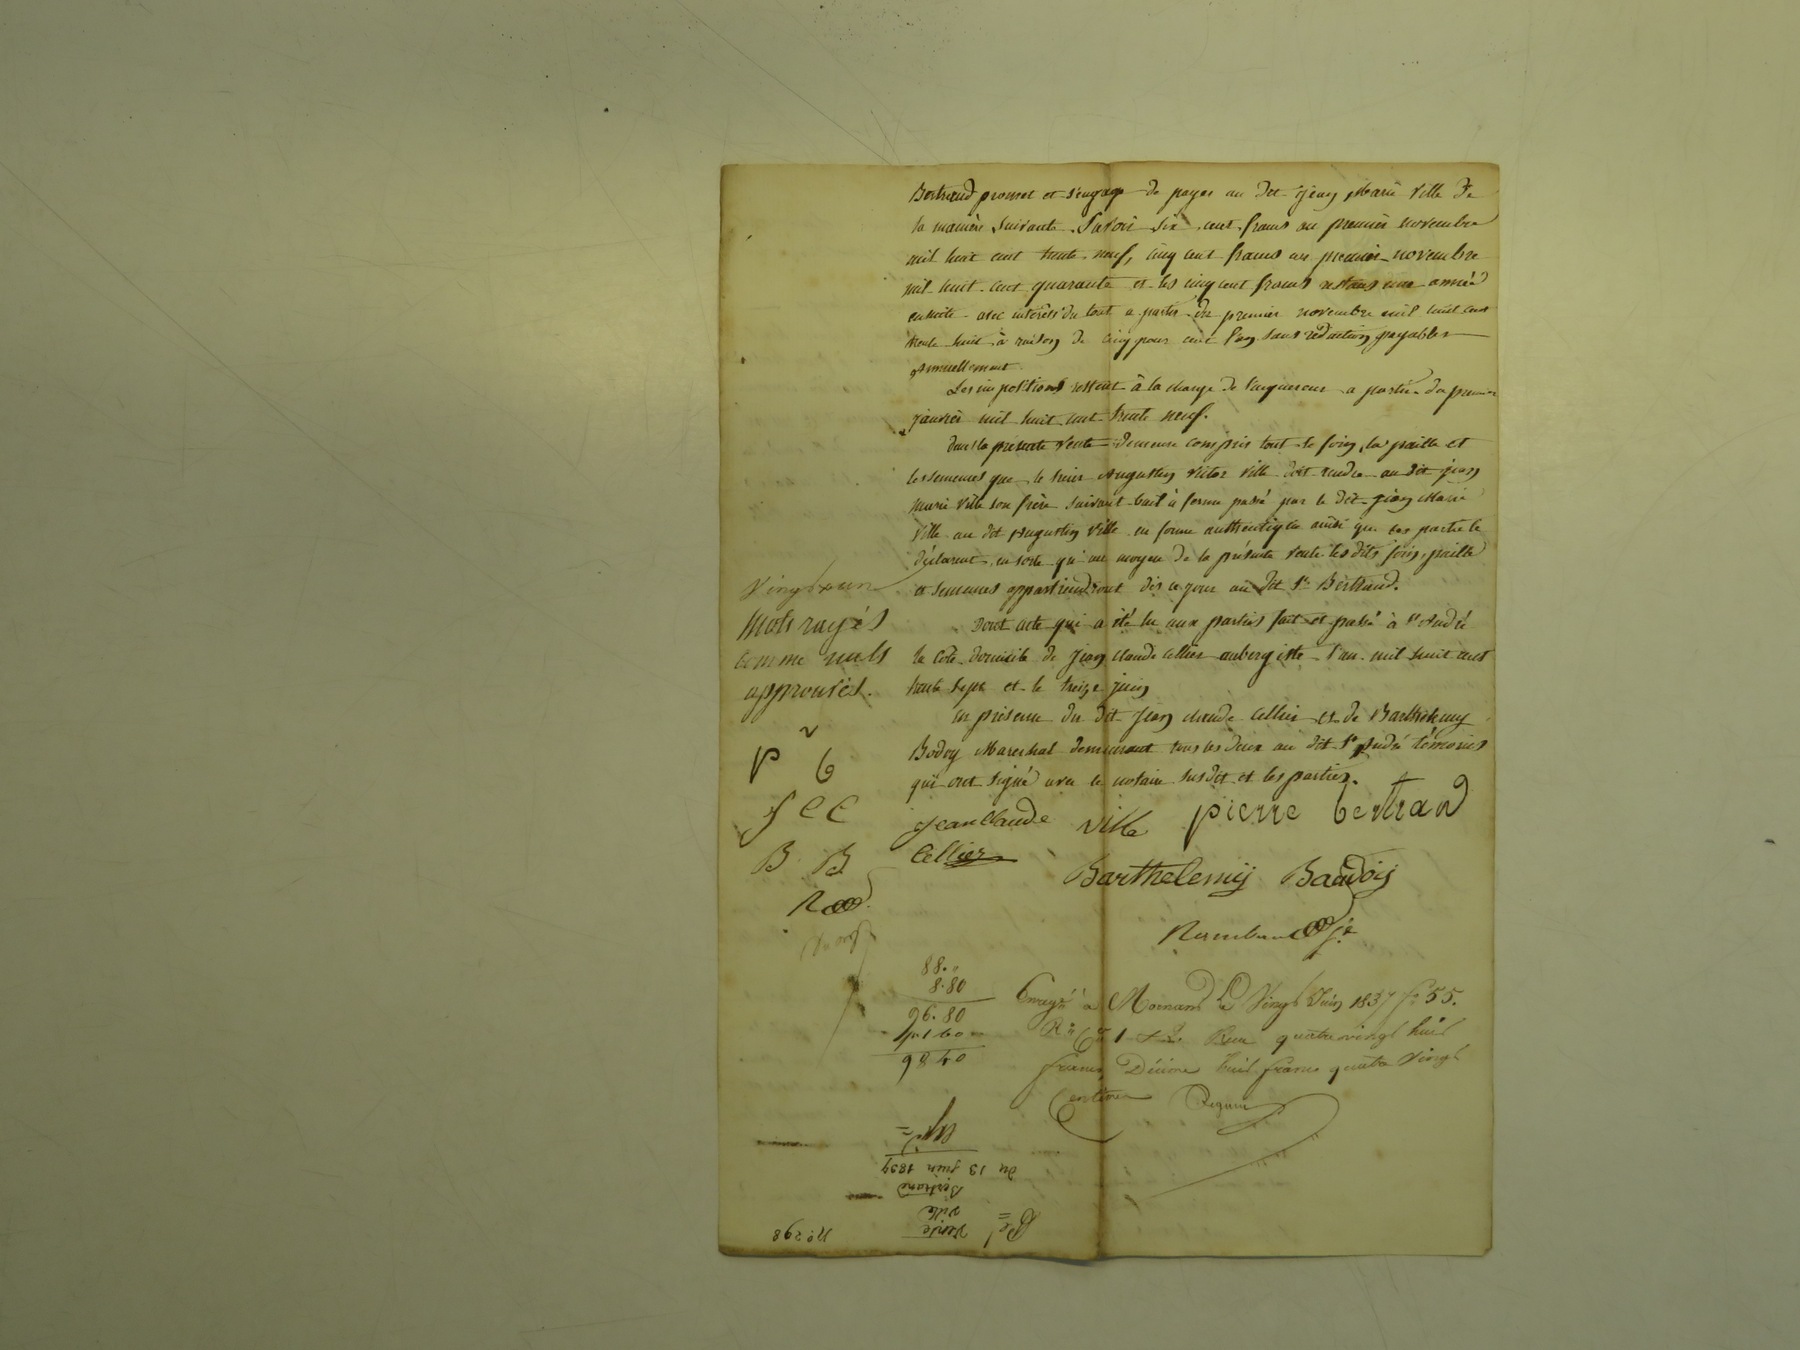 Bertrand promet et s'engage de payer au dit jean Marie Ville de
la manière suivante. Savoir six cent francs au premier novembre
mil huit cent trente neuf, cinq cent francs au premier novembre
mil huit cent quarante et les cinq cent francs restans une année
ensuite avec intérêts du tout a partir du premier novembre mil huit cent
trente huit à raison de cinq pour cent l'an sans réduction payables
annuellement.
Les impositions restent à la charge de l'acquereur a partir du premier
janvier mil huit cent trente neuf.
dans la présente vente demeure compris tout le foin, la paille et
les semences que le sieur Augustin Victor Ville doit rendre au dit jean
Marie Ville son frère suivant bail à ferme passé par le dit jean Marie
Ville au dit Augustin Ville en forme authentique ainsi que les parties le
déclarent, en sorte qu'au moyen de la présente vente les dits foin, paille
et semences appartiendront dès ce jour au dit Sr Bertrand.
Dont acte qui a été lu aux parties fait et passé à St André
la Côte domicile de jean claude Cellier aubergiste l'an mil huit cent
trente sept et le treize juin
en présence du dit jean claude Cellier et de Barthélemy
Bodoy Marechal demeurant tous les deux au dit St André témoins
qui ont signé avec le notaire susdit et les parties.
Vingt un
mots rayés
comme nuls
approuvés.
v
P b
J C C
B B
R
jean Claude
Cellier
Ville
pierre bertrand
Barthelemy Baudoij
88.
8.80
96.80
1 60
98 40
Enregé à Mornand le Vingt Juin 1837 fo 55.
Ro Ce 1 Reçu quatre vingt huit
francs Décime huit francs quatre vingt
centimes
No 298
Vente
Ville
Bertrand
du 13 juin 1837